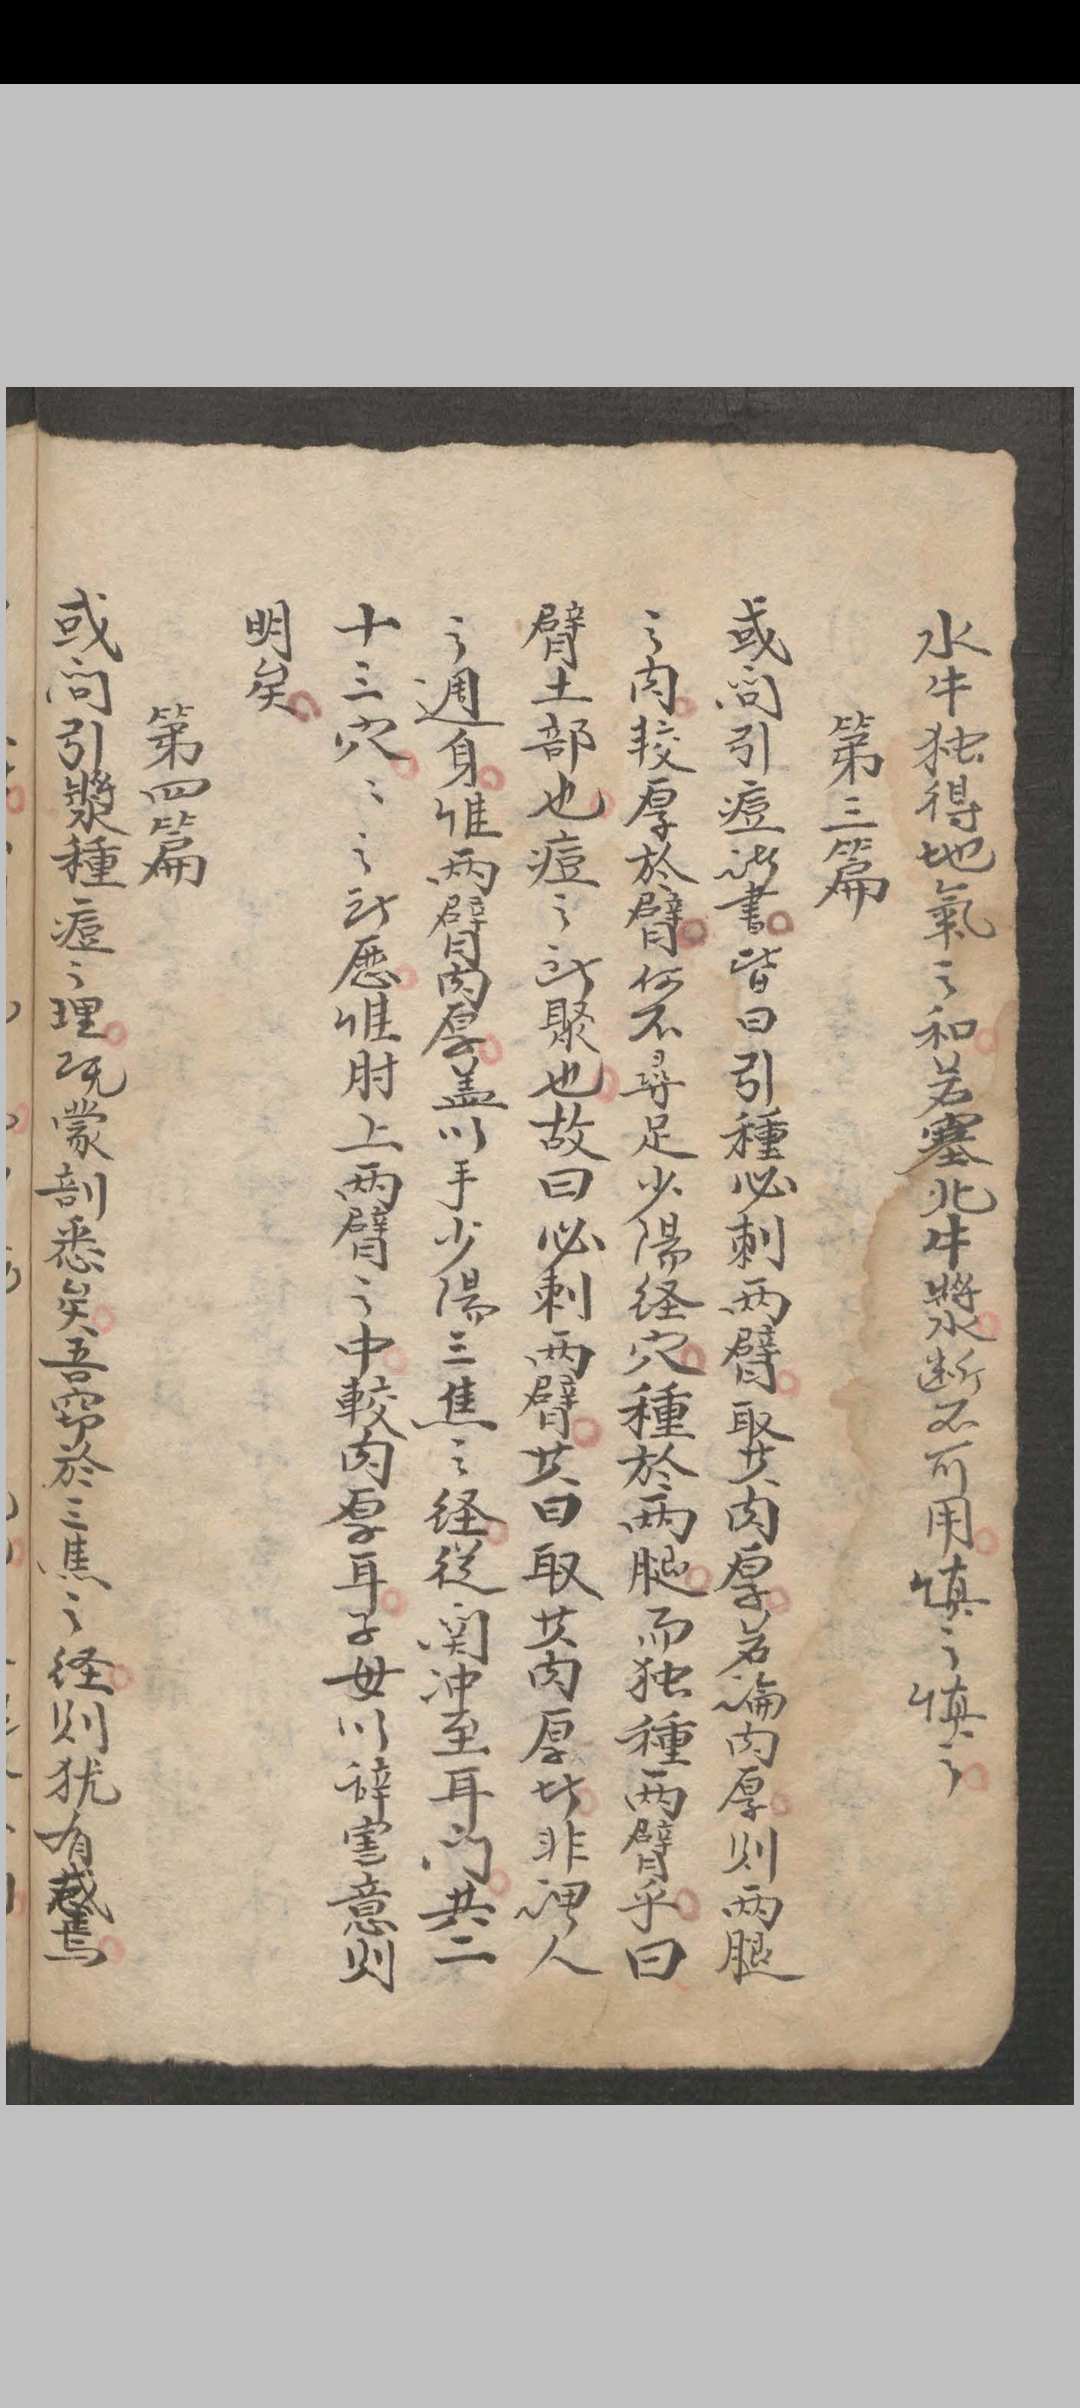 水牛独得地氣之和若塞北牛漿断不可用慎之慎之
第三篇
或问引痘諸書皆曰引種必刺两臂取其肉厚若論肉厚则两腿
之肉較厚於臂何不尋足少陽経穴種於两腿而独種两臂乎曰
臂土部也痘之所聚也故曰必刺两臂其曰取其肉厚此非謂人
之週身惟两臂肉厚盖以手少陽三焦之経従関冲至耳门共二
十三穴〻之所歴惟肘上两臂之中較肉厚耳子毋以辞害意则
明矣
第四篇
或问引漿種痘之理既蒙剖悉矣吾窃於三焦之経则犹有惑焉